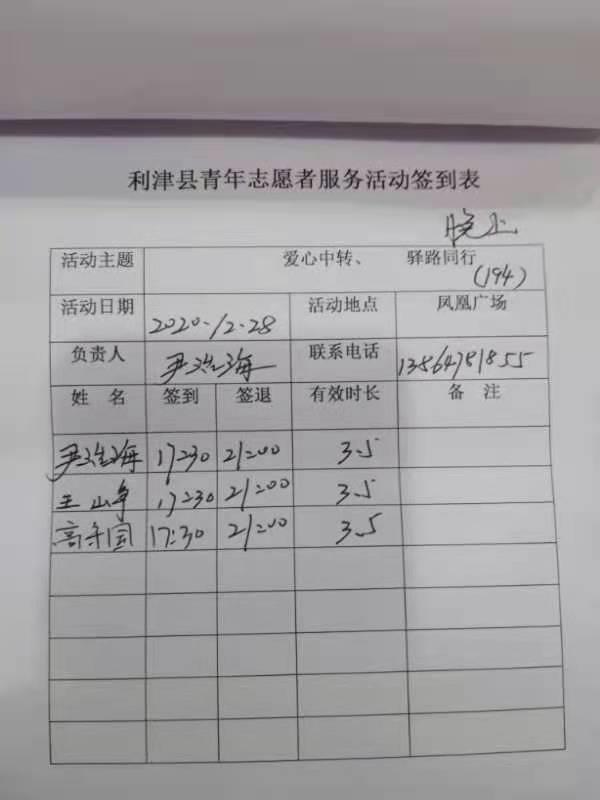 利津县青年志愿者服务活动签到表
晚上
活动主题 爱心中转、 驿路同行 (194)
活动日期 2020.12.28 活动地点 凤凰广场
负责人 尹海 联系电话 13864781855
姓 名 签到 签退 有效时长 备 注
尹海 17:30 21:00 3.5
王山 17:30 21:00 3.5
高守国 17:30 21:00 3.5